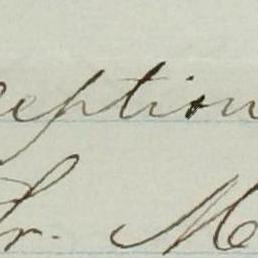 eption
Dr. M